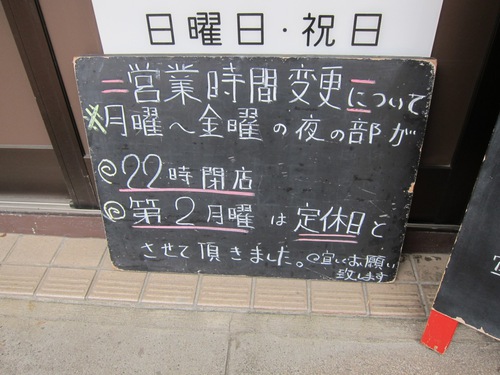 日曜日・祝日
＝営業時間変更＝について
※月曜～金曜の夜の部が
22時閉店
第2月曜は定休日と
させて頂きました。宜しくお願い
致します